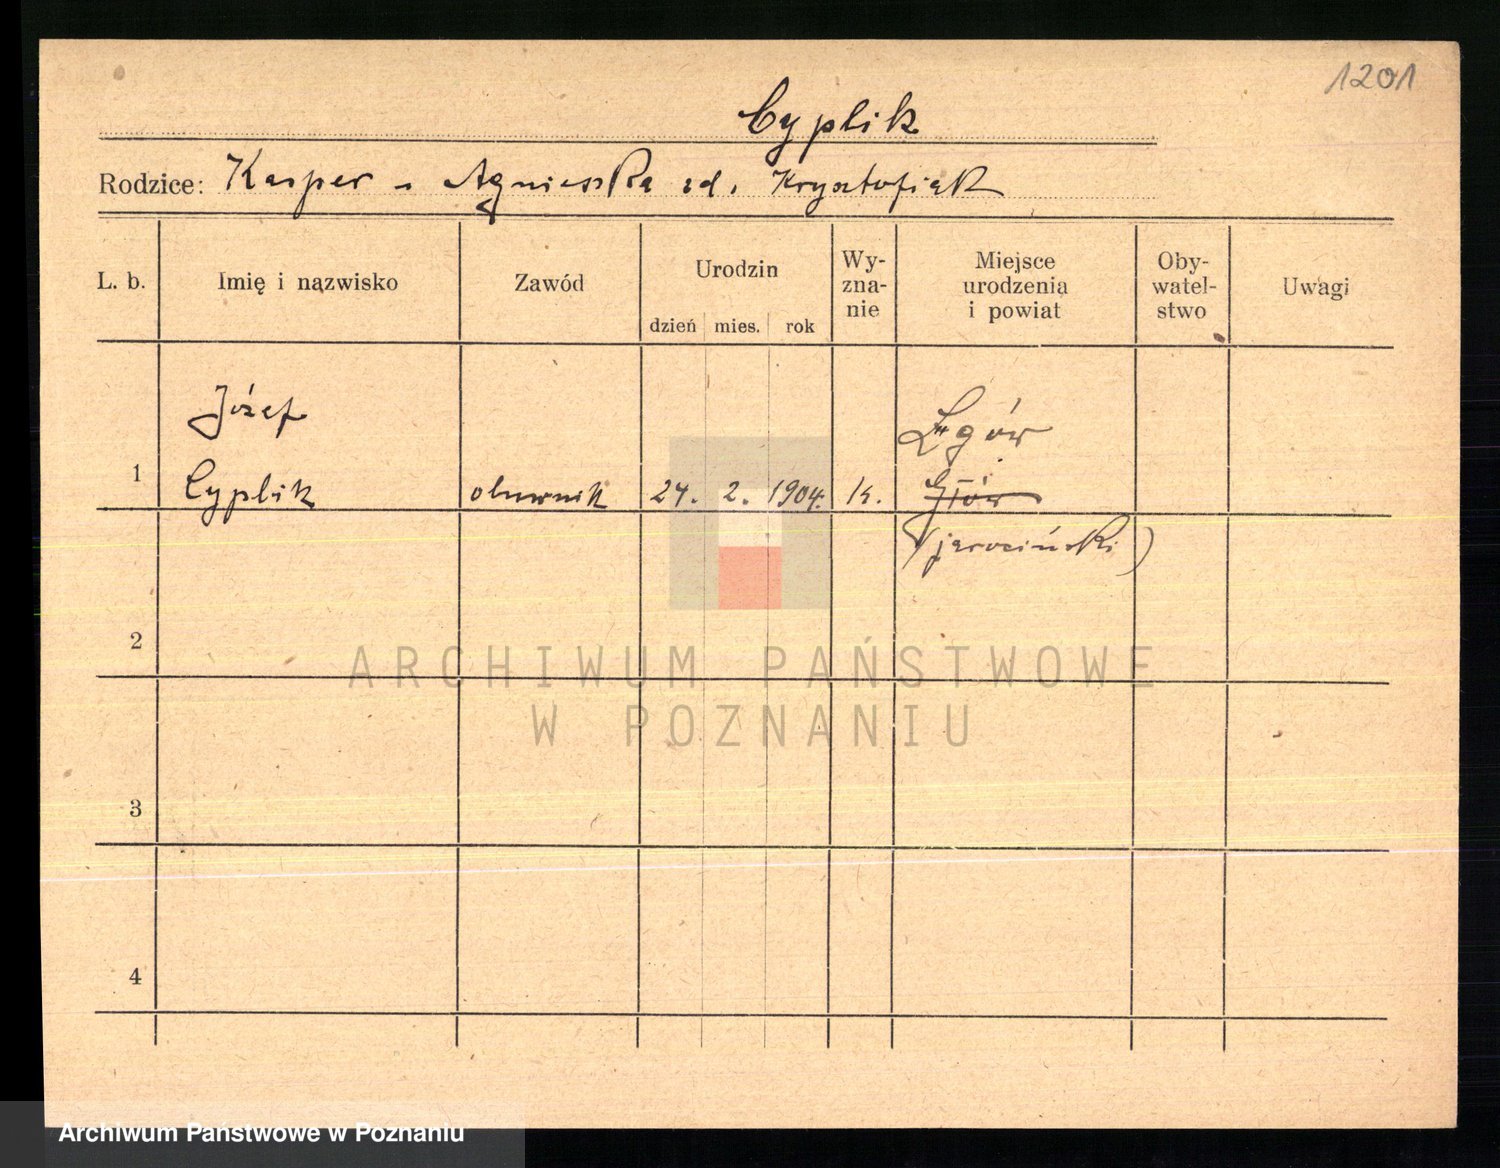 1201
Cyplik
Rodzice: Kasper - Agnieszka zd. Krysztofiak
L. b. Imię i nazwisko Zawód Urodzin dzień mies. rok Wy-zna-nie Miejsce urodzenia i powiat Oby-watel-stwo Uwagi
Józef Lgów
1 Cyplik obuwnik 24. 2. 1904. k.
(jarociński)
2
ARCHIWUM PAŃSTWOWE
W POZNANIU
3
4
Archiwum Państwowe w Poznaniu